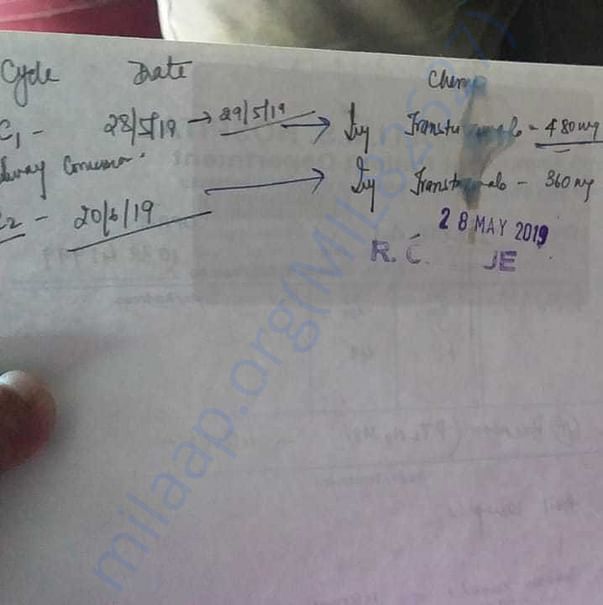 Cycle Date Chem
C1 - 28/5/19 → 29/5/19 → Inj Trastuzumab - 480mg
Railway Concession
C2 - 20/6/19 → Inj Trastuzumab - 360mg
28 MAY 2019
R. C. JE
milaap.org(MIL82627)